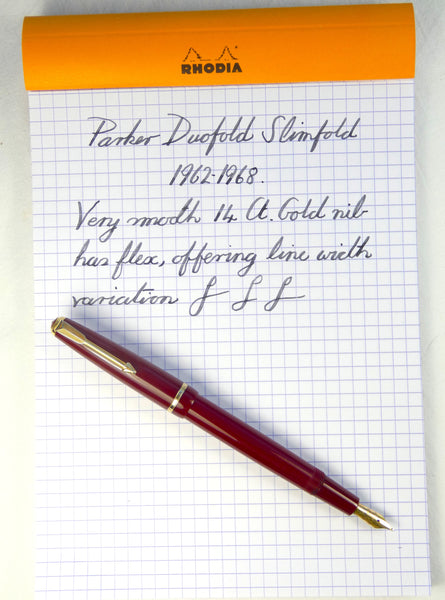 RHODIA
Parker Duofold Slimfold
1962-1968.
Very smooth 14 Ct. Gold nib
has flex, offering line width
variation £ £ £